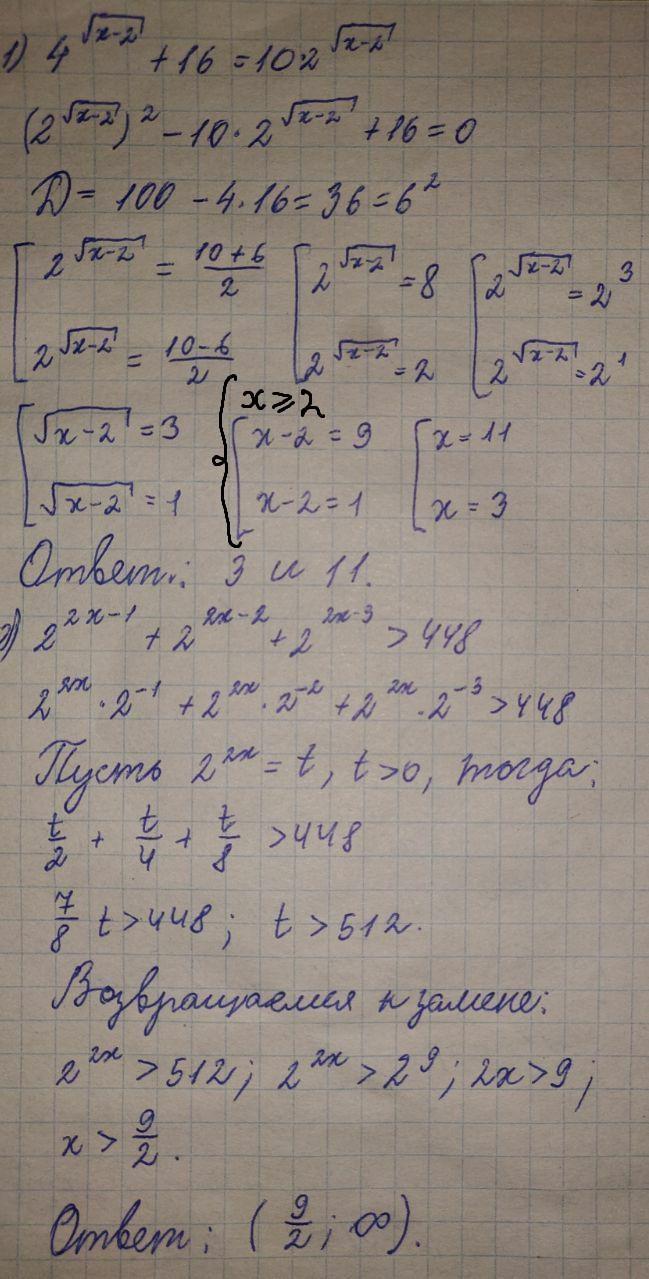 1) 4^√(x-2) + 16 = 10·2^√(x-2)
(2^√(x-2))^2 - 10·2^√(x-2) + 16 = 0
D = 100 - 4·16 = 36 = 6^2
[ 2^√(x-2) = (10+6)/2 [ 2^√(x-2) = 8 [ 2^√(x-2) = 2^3
2^√(x-2) = (10-6)/2 2^√(x-2) = 2 2^√(x-2) = 2^1
{ x ⩾ 2
[ √(x-2) = 3 [ x-2 = 9 [ x = 11
√(x-2) = 1 x-2 = 1 x = 3
Ответ: 3 и 11.
2) 2^(2x-1) + 2^(2x-2) + 2^(2x-3) > 448
2^(2x)·2^(-1) + 2^(2x)·2^(-2) + 2^(2x)·2^(-3) > 448
Пусть 2^(2x) = t, t>0, тогда:
t/2 + t/4 + t/8 > 448
7/8 t > 448; t > 512.
Возвращаемся к замене:
2^(2x) > 512; 2^(2x) > 2^9; 2x > 9;
x > 9/2.
Ответ: (9/2; ∞).